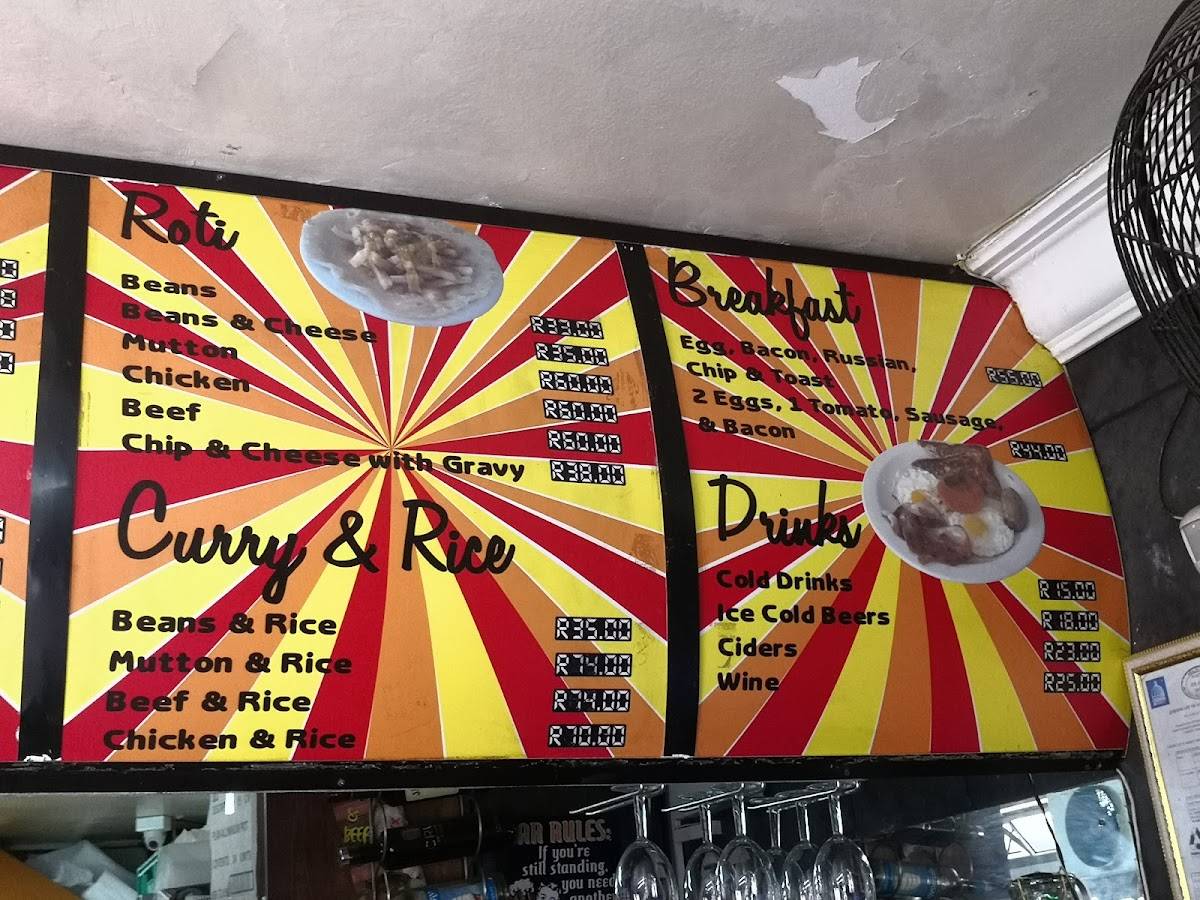 Roti
Beans R33.00
Beans & Cheese R35.00
Mutton R60.00
Chicken R60.00
Beef R60.00
Chip & Cheese with Gravy R38.00
Curry & Rice
Beans & Rice R35.00
Mutton & Rice R74.00
Beef & Rice R74.00
Chicken & Rice R70.00
Breakfast
Egg, Bacon, Russian,
Chip & Toast R65.00
2 Eggs, 1 Tomato, Sausage,
& Bacon R44.00
Drinks
Cold Drinks R15.00
Ice Cold Beers R18.00
Ciders R23.00
Wine R25.00
&
BEER
AR RULES:
If you're
still standing,
you need
another